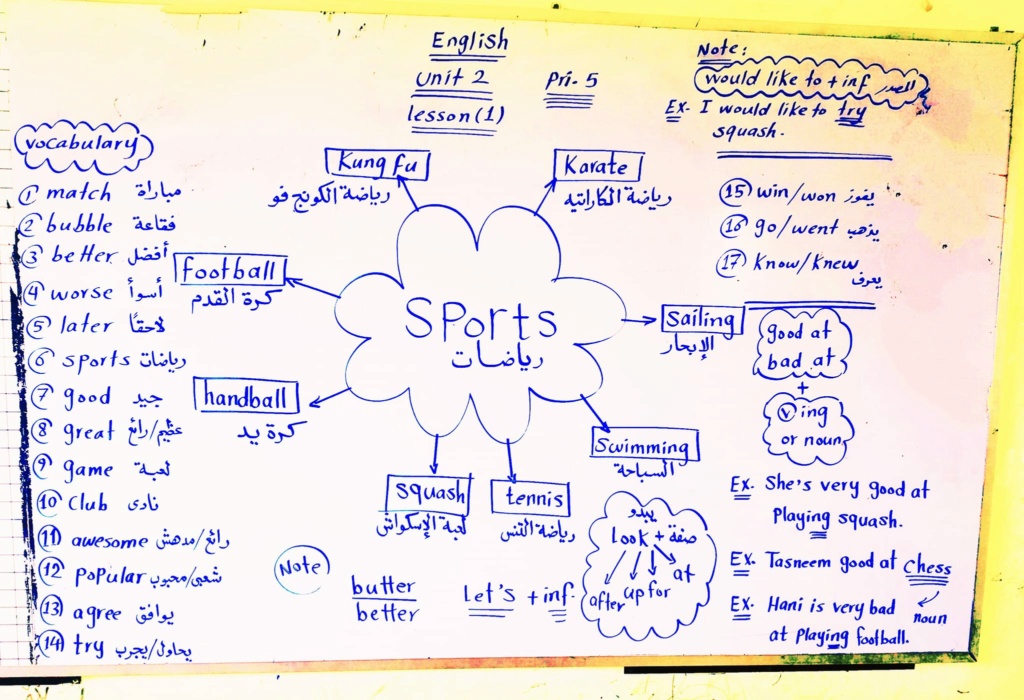 English
Unit 2
Pri- 5
lesson (1)
Note:
would like to + inf المصدر
Ex- I would like to try
squash.
vocabulary
① match مباراة
② bubble فقاعة
③ better أفضل
④ worse أسوأ
⑤ later لاحقًا
⑥ sports رياضات
⑦ good جيد
⑧ great عظيم/رائع
⑨ game لعبة
⑩ Club نادى
⑪ awesome رائع/مدهش
⑫ popular شعبى/محبوب
⑬ agree يوافق
⑭ try يحاول/يجرب
SPorts
رياضات
Kung fu
رياضة الكونج فو
Karate
رياضة الكاراتيه
football
كرة القدم
Sailing
الإبحار
handball
كرة يد
Swimming
السباحة
squash
لعبة الإسكواش
tennis
رياضة التنس
⑮ win/won يفوز
⑯ go/went يذهب
⑰ Know/Knew يعرف
good at
bad at
+
ⓥ ing
or noun
Ex. She's very good at
Playing squash.
Ex. Tasneem good at chess
noun
Ex. Hani is very bad
at Playing football.
Note
butter
better
Let's + inf.
يبدو
look + صفة
after up for at